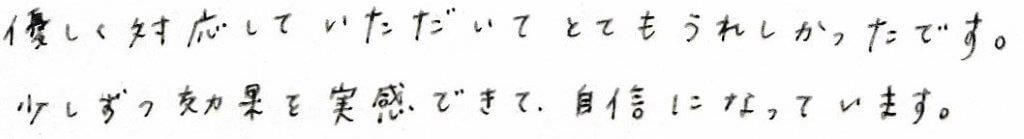 優しく対応していたただいてとてもうれしかったです。
少しずつ効果を実感できて、自信になっています。